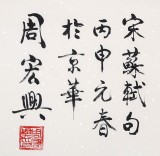 宋蘇軾句
丙申元春
於京華
周宏興